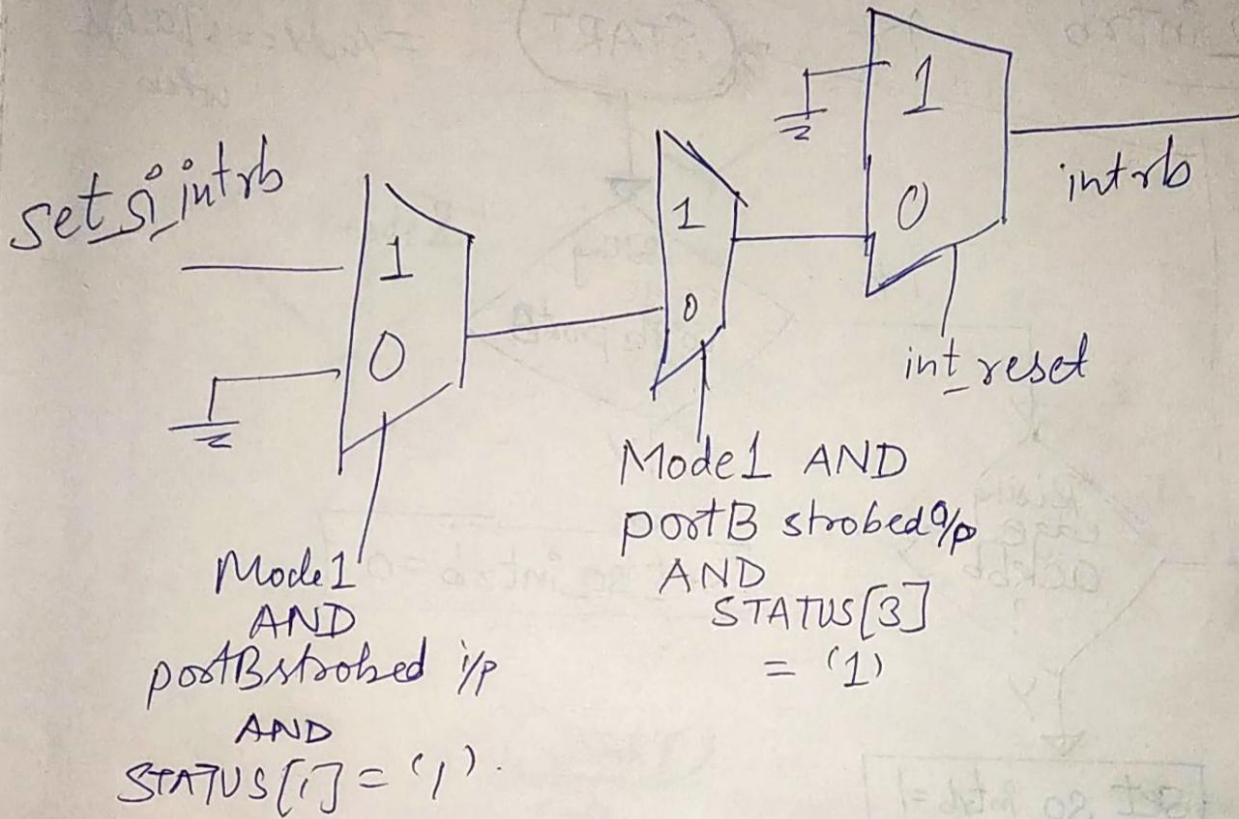 set_si_intrb
1
0
Mode1
AND
portBstrobed i/p
AND
STATUS[1] = '1'.
1
0
Mode1 AND
portB strobed o/p
AND
STATUS[3]
= '1'
1
0
int_reset
intrb